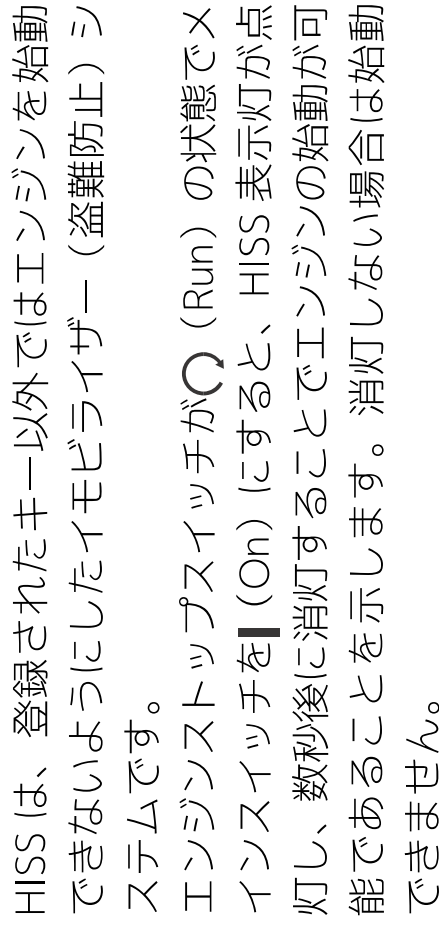 HISS は、登録されたキー以外ではエンジンを始動
できないようにしたイモビライザー（盗難防止）シ
ステムです。
エンジンストップスイッチが（Run）の状態でメ
インスイッチを（On）にすると、HISS 表示灯が点
灯し、数秒後に消灯することでエンジンの始動が可
能であることを示します。消灯しない場合は始動
できません。